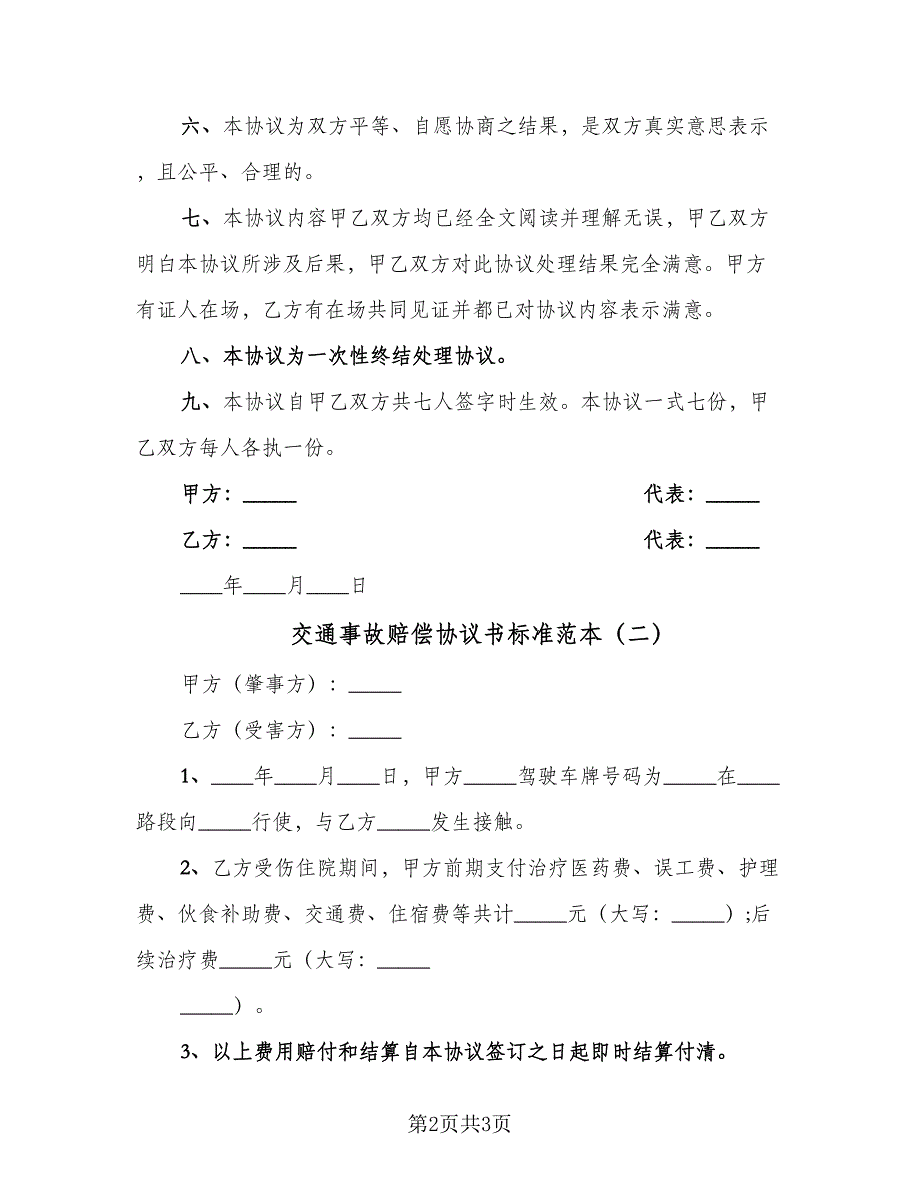 六、本协议为双方平等、自愿协商之结果，是双方真实意思表示
，且公平、合理的。
七、本协议内容甲乙双方均已经全文阅读并理解无误，甲乙双方
明白本协议所涉及后果，甲乙双方对此协议处理结果完全满意。甲方
有证人在场，乙方有在场共同见证并都已对协议内容表示满意。
八、本协议为一次性终结处理协议。
九、本协议自甲乙双方共七人签字时生效。本协议一式七份，甲
乙双方每人各执一份。
甲方：_____ 代表：_____
乙方：_____ 代表：_____
____年____月____日
交通事故赔偿协议书标准范本（二）
甲方（肇事方）：_____
乙方（受害方）：_____
1、____年____月____日，甲方_____驾驶车牌号码为_____在____
路段向_____行使，与乙方_____发生接触。
2、乙方受伤住院期间，甲方前期支付治疗医药费、误工费、护理
费、伙食补助费、交通费、住宿费等共计_____元（大写：_____）;后
续治疗费_____元（大写：_____
_____）。
3、以上费用赔付和结算自本协议签订之日起即时结算付清。
第2页共3页